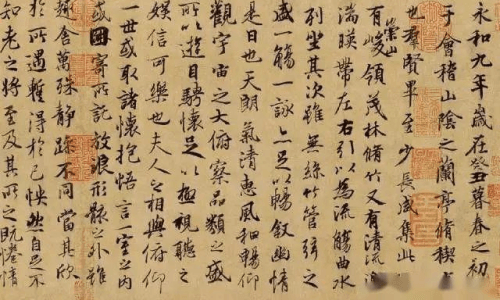 永和九年歲在癸丑暮春之初
于會稽山陰之蘭亭脩禊
也羣賢畢至少長咸集此
有崇山峻領茂林脩竹又有清流
湍暎帶左右引以為流觴曲水
列坐其次雖無絲竹管弦之
盛一觴一詠亦足以暢叙幽情
是日也天朗氣清惠風和暢仰
觀宇宙之大俯察品類之盛
所以遊目騁懷足以極視聽之
娛信可樂也夫人之相與俯仰
一世或取諸懷抱悟言一室之內
或因寄所託放浪形骸之外雖
趣舍萬殊靜躁不同當其欣
所遇暫得於己怏然自足不
知老之將至及其所之既惓情